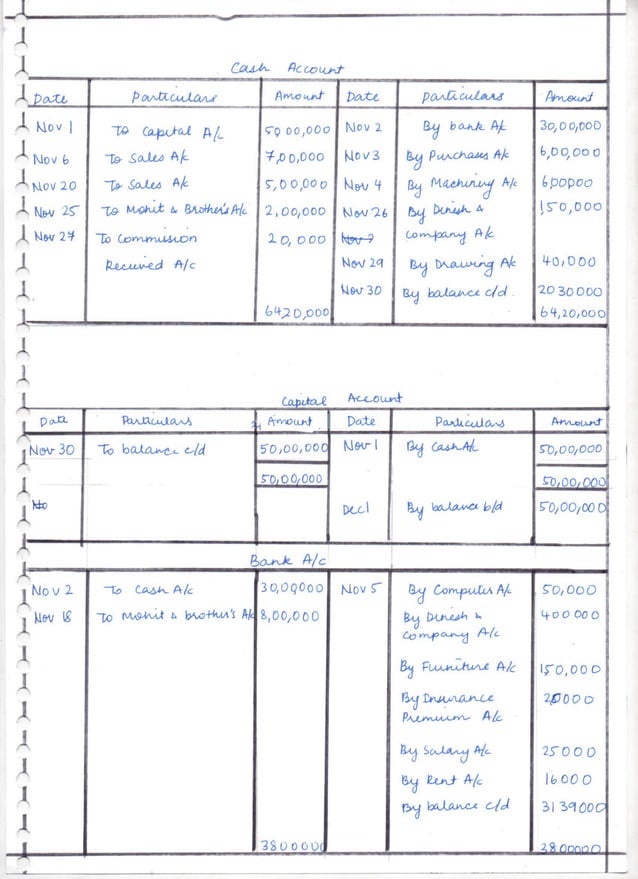 Cash Account
Date Particulars Amount Date Particulars Amount
Nov 1 To Capital A/c 5000,000 Nov 2 By bank A/c 30,00,000
Nov 6 To Sales A/c 7,00,000 Nov 3 By Purchases A/c 6,00,000
Nov 20 To Sales A/c 5,00,000 Nov 4 By Machinery A/c 600000
Nov 25 To Mohit & Brother's A/c 2,00,000 Nov 26 By Dinesh & 150,000
Nov 27 To Commission 20,000 company A/c
Received A/c Nov 29 By Drawing A/c 40,000
Nov 30 By balance c/d. 2030000
6420,000 64,20,000
Capital Account
Date Particulars Amount Date Particulars Amount
Nov 30 To balance c/d 50,00,000 Nov 1 By Cash A/c 50,00,000
50,00,000 50,00,000
Dec 1 By balance b/d 50,00,000
Bank A/c
Nov 2 To Cash A/c 30,00000 Nov 5 By Computer A/c 50,000
Nov 18 To Mohit & brother's A/c 8,00,000 By Dinesh & 400000
company A/c
By Furniture A/c 150,000
By Insurance
Premium A/c
By Salary A/c 25000
By Rent A/c 16000
By balance c/d 3139000
3800000 3800000